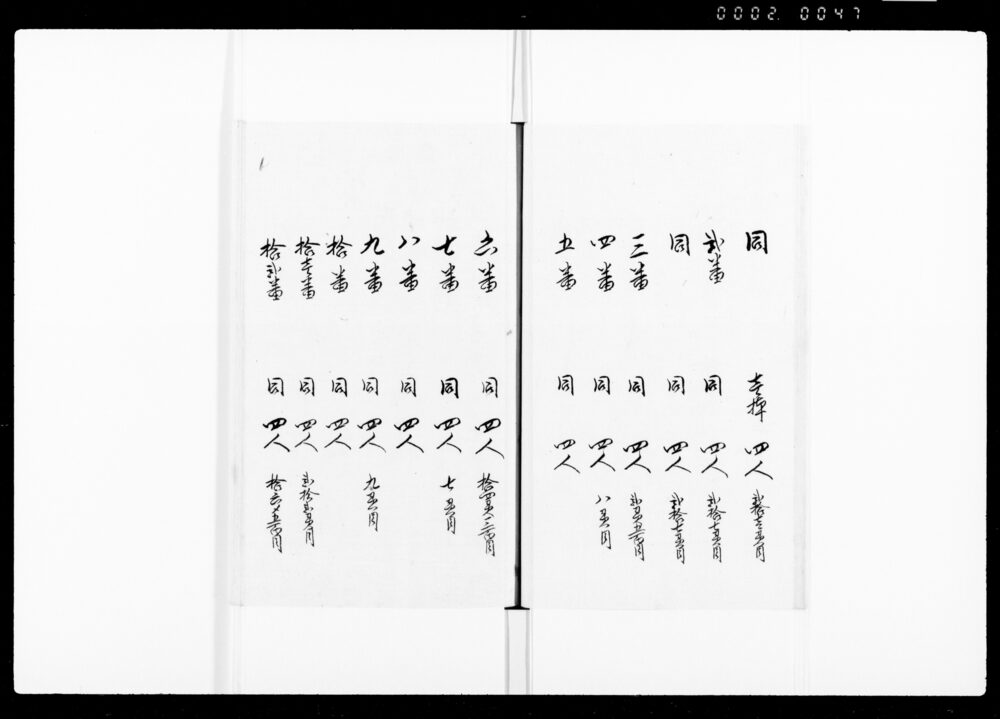 0002.0047
同 壱棹 四人 弐拾三貫目
弐番 同 四人 弐拾七貫目
同 同 四人 弐拾七貫目
三番 同 四人 弐貫五百目
四番 同 四人 八貫目
五番 同 四人
六番 同 四人 拾四貫三百目
七番 同 四人 七貫目
八番 同 四人
九番 同 四人 九貫目
拾番 同 四人
拾壱番 同 四人 弐拾弐貫目
拾弐番 同 四人 拾六貫五百目